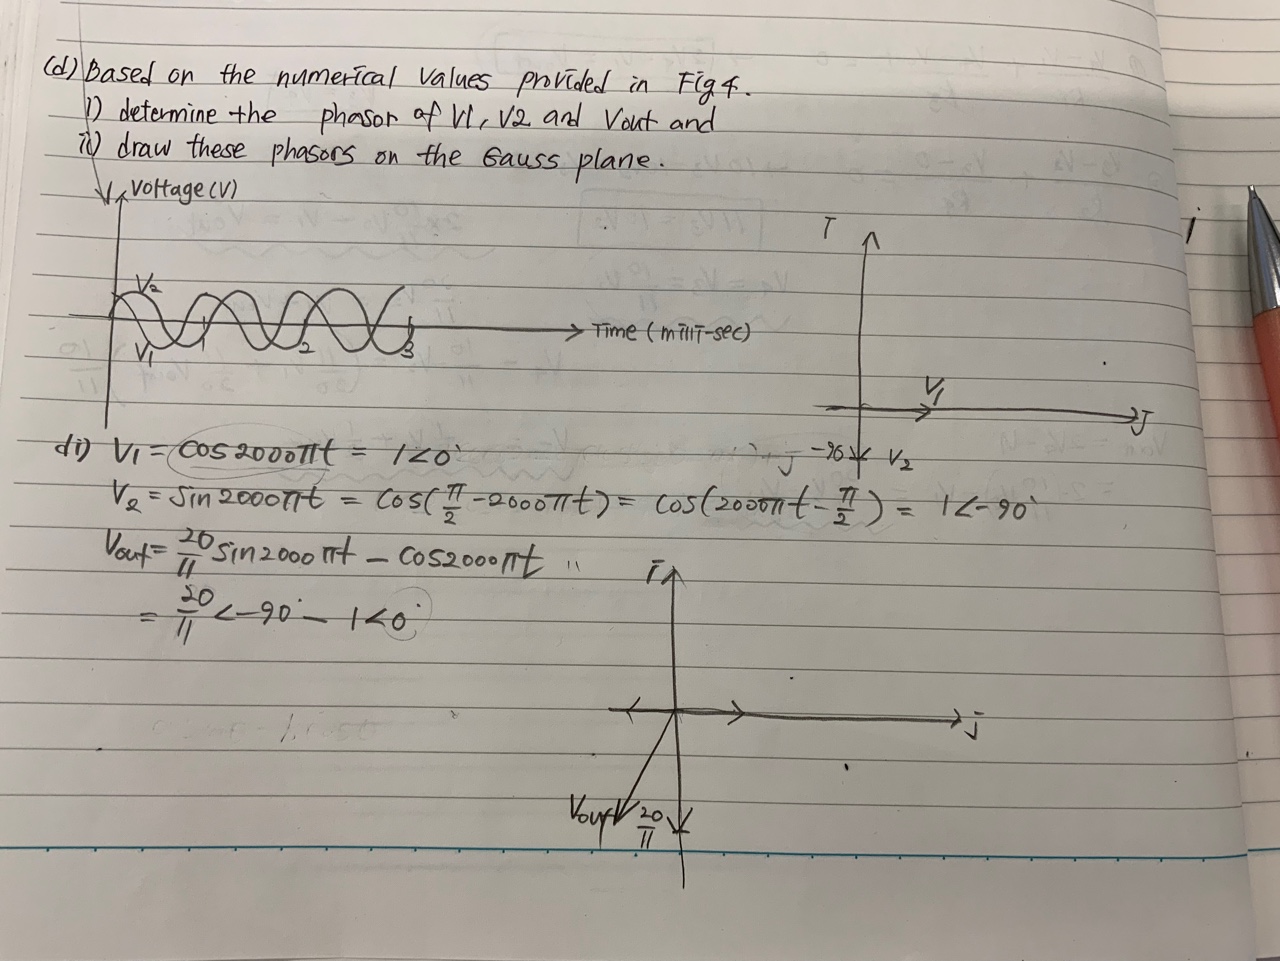 (d) Based on the numerical values provided in Fig 4.
i) determine the phasor of V1, V2 and Vout and
ii) draw these phasors on the Gauss plane.
Voltage (V)
V₂
V₁
1
2
3
Time (milli-sec)
V₁
J
-90
V₂
di) V₁ = cos2000πt = 1<0°
V₂ = sin2000πt = cos(π/2 - 2000πt) = cos(2000πt - π/2) = 1<-90°
Vout = 20/11 sin2000πt - cos2000πt
= 20/11 <-90° - 1<0°
j
Vout
20/11